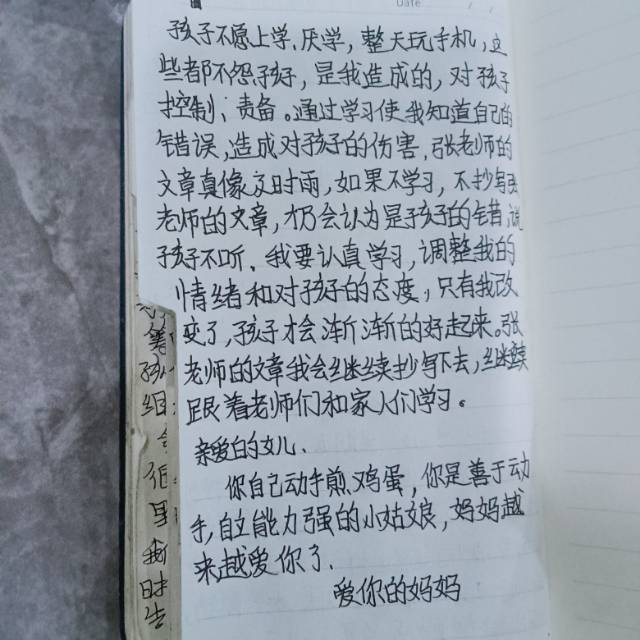 Date
孩子不愿上学、厌学，整天玩手机，这
些都不怨孩子，是我造成的，对孩子
控制、责备。通过学习使我知道自己的
错误，造成对孩子的伤害，张老师的
文章真像及时雨，如果不学习，不抄写张
老师的文章，仍会认为是孩子的错，说
孩子不听、我要认真学习，调整我的
情绪和对孩子的态度，只有我改
变了，孩子才会渐渐的好起来。张
老师的文章我会继续抄写下去，继续
跟着老师们和家人们学习。
亲爱的女儿、
你自己动手煎鸡蛋，你是善于动
手，自立能力强的小姑娘，妈妈越
来越爱你了.
爱你的妈妈